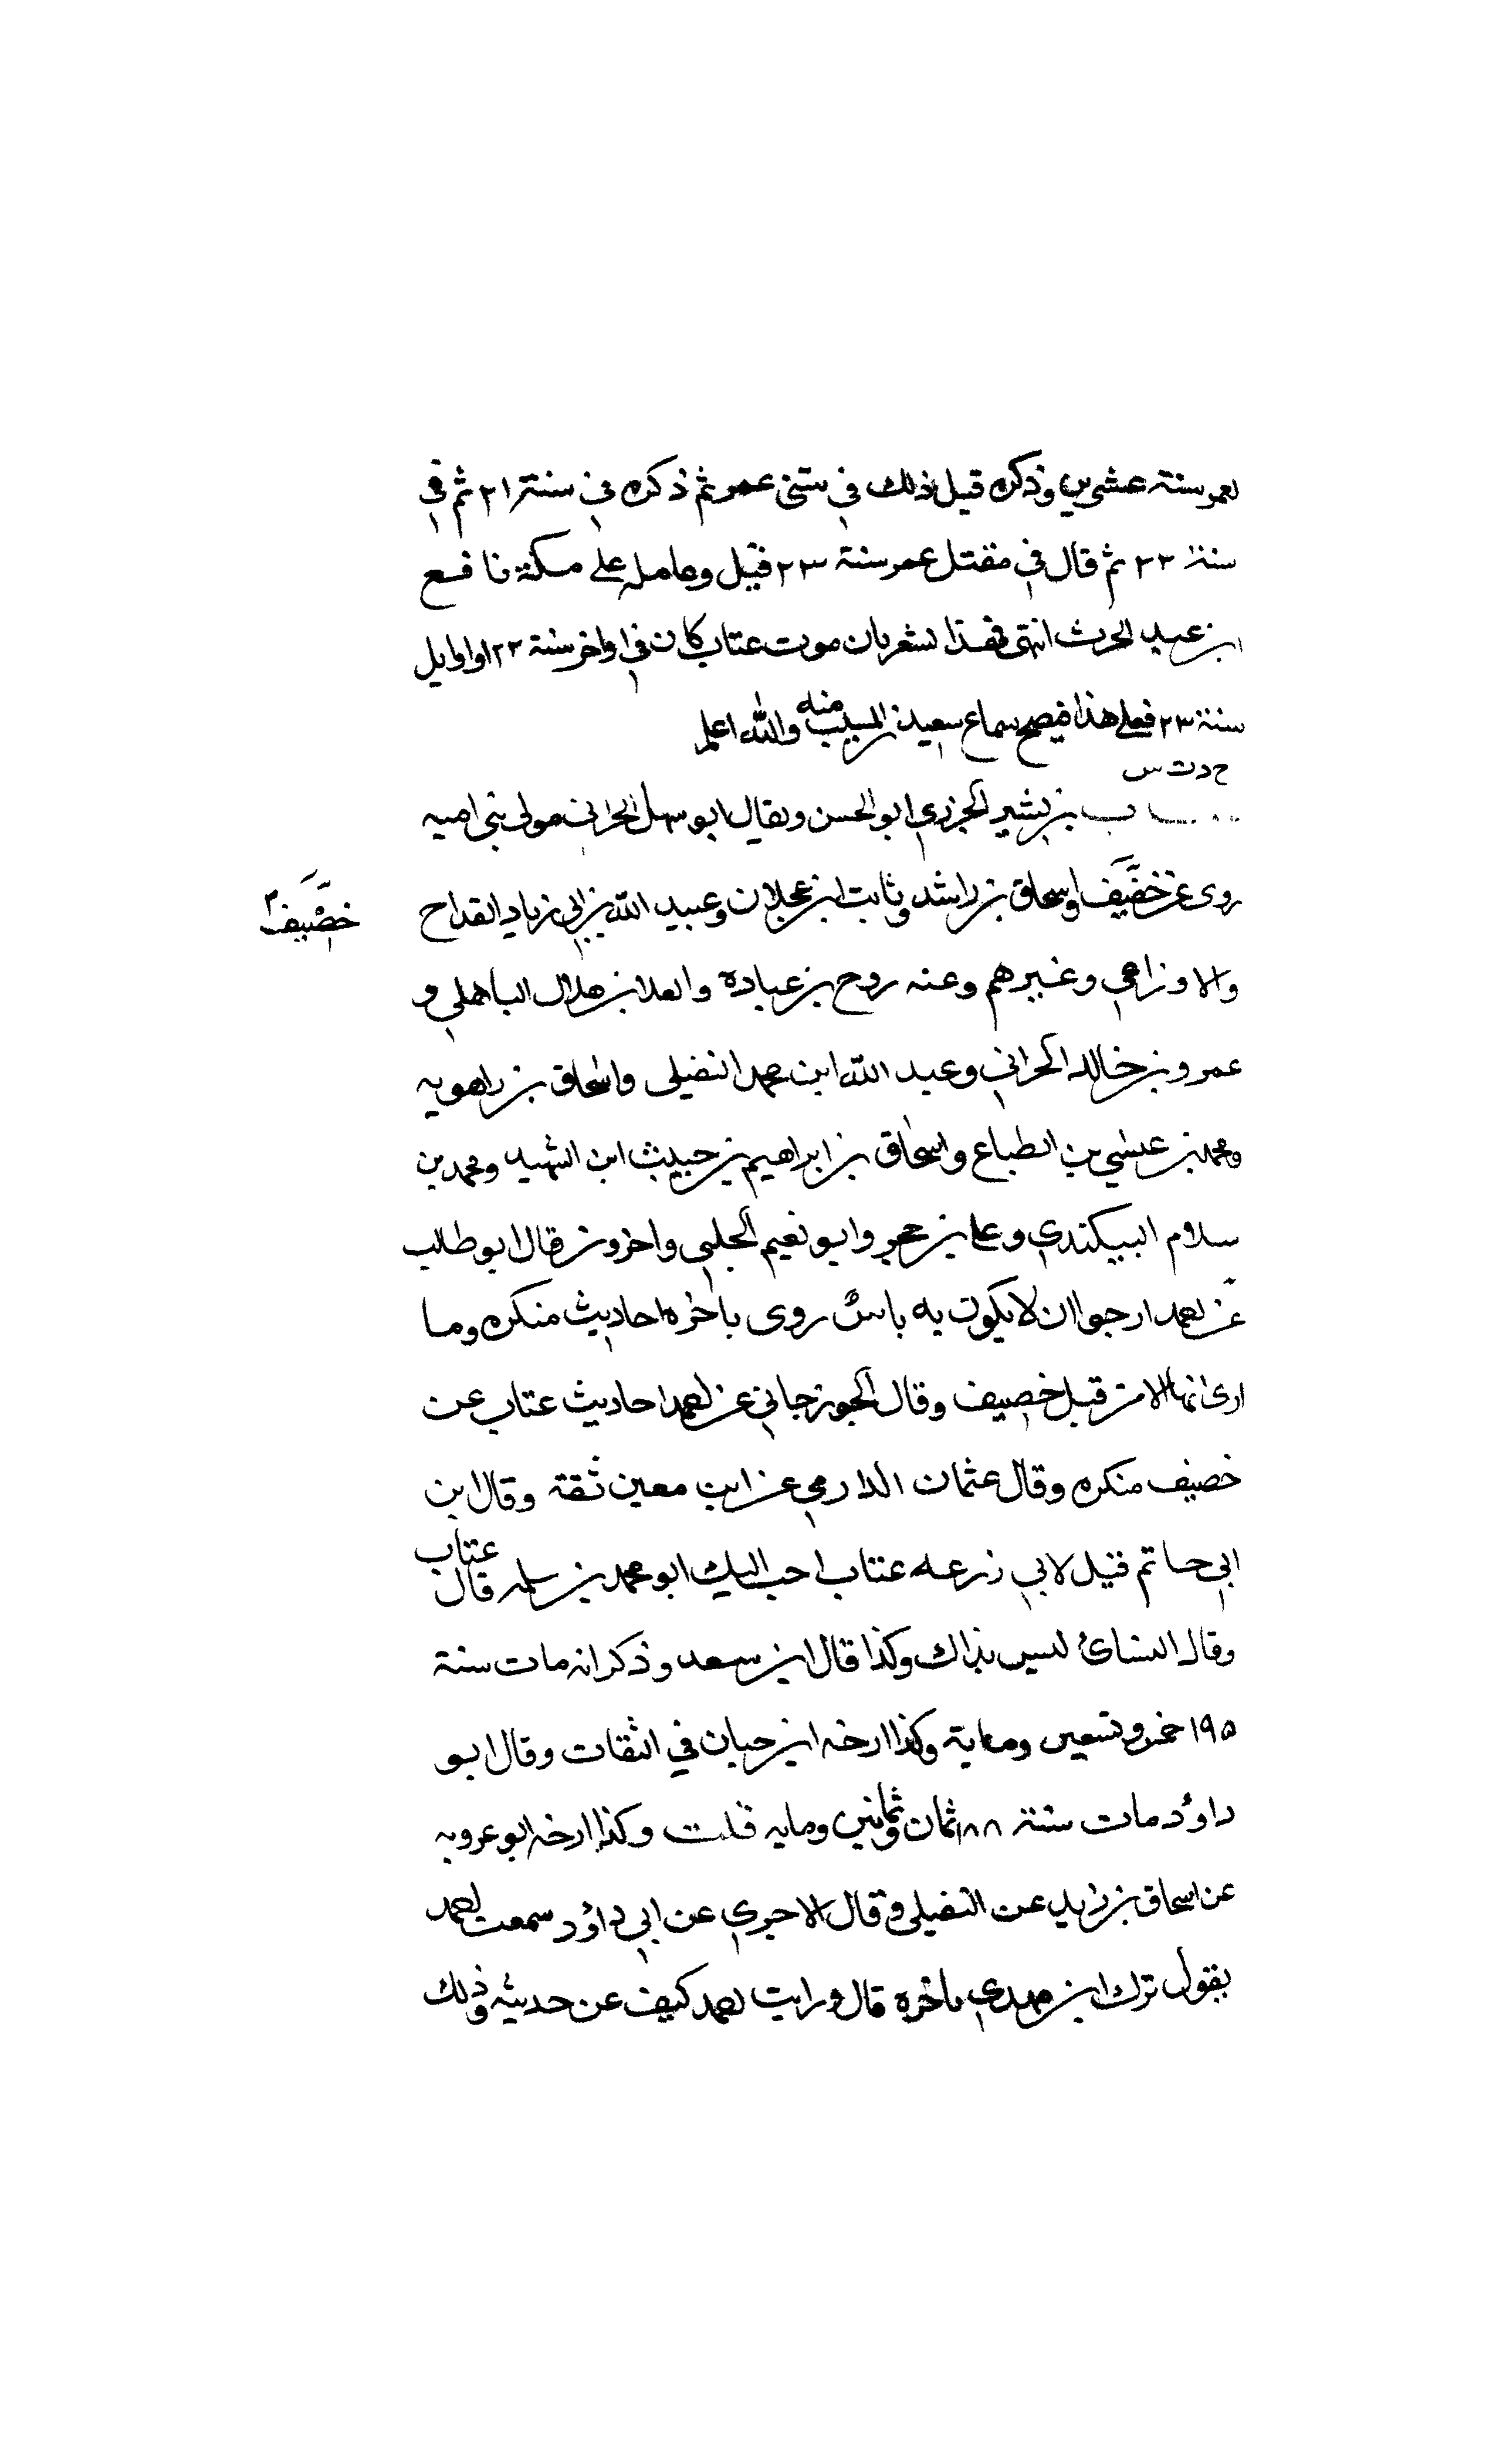 لعمر سنة عشرين وذكره قبل ذلك في سني عمر ثم ذكره في سنة ٢١ ثم في
سنة ٢٢ ثم قال في مقتل عمر سنة ٢٣ قتل وعامله على مكة نافع
ابن عبد الحرث انتهى فهذا يشعر بان موت عتاب كان في اواخر سنة ٢٢ او اوايل
سنة ٢٣ فعلى هذا فيصح سماع سعيد بن المسيب منه والله اعلم
خ د ت س
بن بشير الجزري ابو الحسن ويقال ابو سهل الحراني مولى بني اميه
روى عن خصيف واسحاق بن راشد وثابت ابن عجلان وعبيد الله بن ابي زياد القداح
خصيف
والاوزاعي وغيرهم وعنه روح بن عبادة والعلا بن هلال الباهلي و
عمرو بن خالد الحراني وعبد الله ابن محمد النفيلى واسحاق بن راهويه
ومحمد بن عيسى بن الطباع واسحاق بن ابراهيم بن حبيب ابن الشهيد ومحمد بن
سلام البيكندي وعلى بن حجر وابو نعيم الحلبي واخرون قال ابو طالب
عن احمد ارجوا ان لا يكون به باس روى باخره احاديث منكره وما
ارى انها الا من قبل خصيف وقال الجوزجاني عن احمد احاديث عتاب عن
خصيف منكره وقال عثمان الدارمي عن ابن معين ثقة وقال ابن
ابي حاتم قيل لابي زرعه عتاب احب اليك ابو محمد بن سلمه قال عتاب
وقال النسائ ليس بذاك وكذا قال ابن سعد وذكر انه مات سنة
١٩٥ خمس وتسعين وماية وكذا ارخه ابن حبان في الثقات وقال ابو
داؤد مات سنة ١٨٨ ثمان وثمانين ومايه قلت وكذا ارخه ابو عروبه
عن اسحاق بن زيد عن النفيلى وقال الاجري عن ابي داؤد سمعت احمد
يقول ترك ابن مهدي باخره قال ورايت احمد كيف عن حديثه وذلك